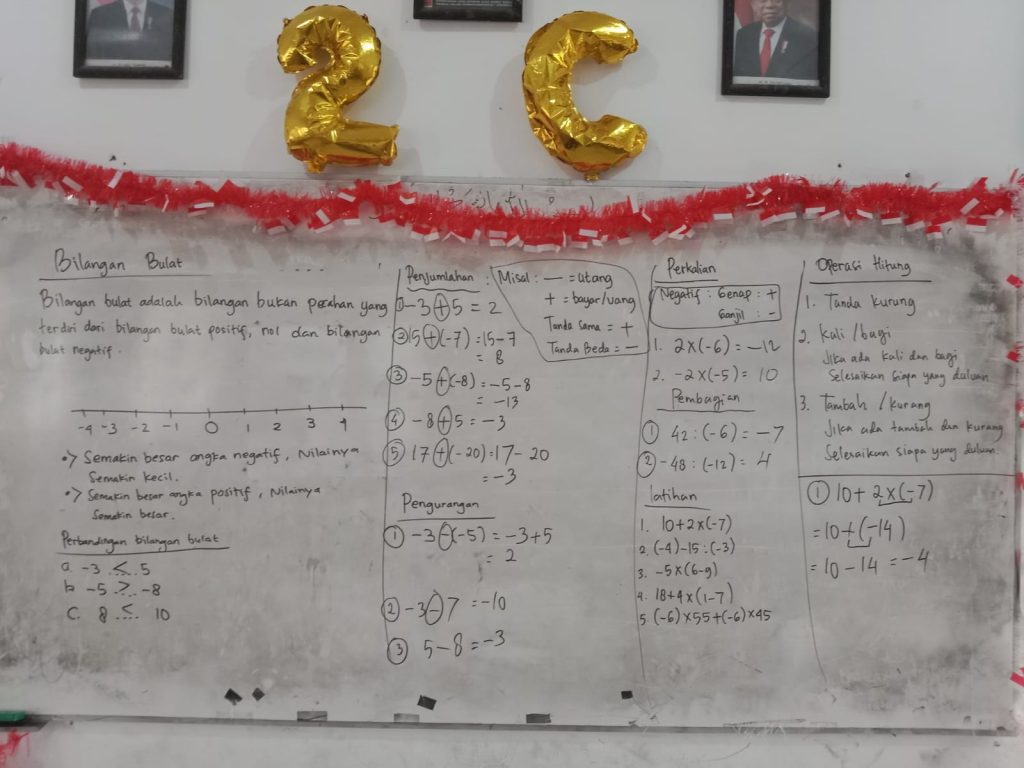 2 C
Bilangan Bulat
Bilangan bulat adalah bilangan bukan pecahan yang
terdiri dari bilangan bulat positif, nol dan bilangan
bulat negatif.
-4 -3 -2 -1 0 1 2 3 4
•> Semakin besar angka negatif, Nilainya
Semakin kecil.
•> Semakin besar angka positif, Nilainya
Semakin besar.
Perbandingan bilangan bulat
a. -3 .<. 5
b -5 .>. -8
C. 8 .<. 10
Penjumlahan :
Misal : — = utang
+ = bayar/uang
Tanda Sama = +
Tanda Beda = —
① -3 + 5 = 2
② 15 + (-7) = 15 - 7
= 8
③ -5 + (-8) = -5 - 8
= -13
④ -8 + 5 = -3
⑤ 17 + (-20) = 17 - 20
= -3
Pengurangan
① -3 - (-5) = -3 + 5
= 2
② -3 - 7 = -10
③ 5 - 8 = -3
Perkalian
Negatif : Genap : +
Ganjil : -
1. 2 x (-6) = -12
2. -2 x (-5) = 10
Pembagian
① 42 : (-6) = -7
② -48 : (-12) = 4
latihan
1. 10 + 2 x (-7)
2. (-4) - 15 : (-3)
3. -5 x (6-9)
4. 18 + 4 x (1-7)
5. (-6) x 55 + (-6) x 45
Operasi Hitung
1. Tanda kurung
2. Kali / bagi
Jika ada kali dan bagi
Selesaikan siapa yang duluan
3. Tambah / kurang
Jika ada tambah dan kurang
Selesaikan siapa yang duluan.
① 10 + 2 x (-7)
= 10 + (-14)
= 10 - 14 = -4